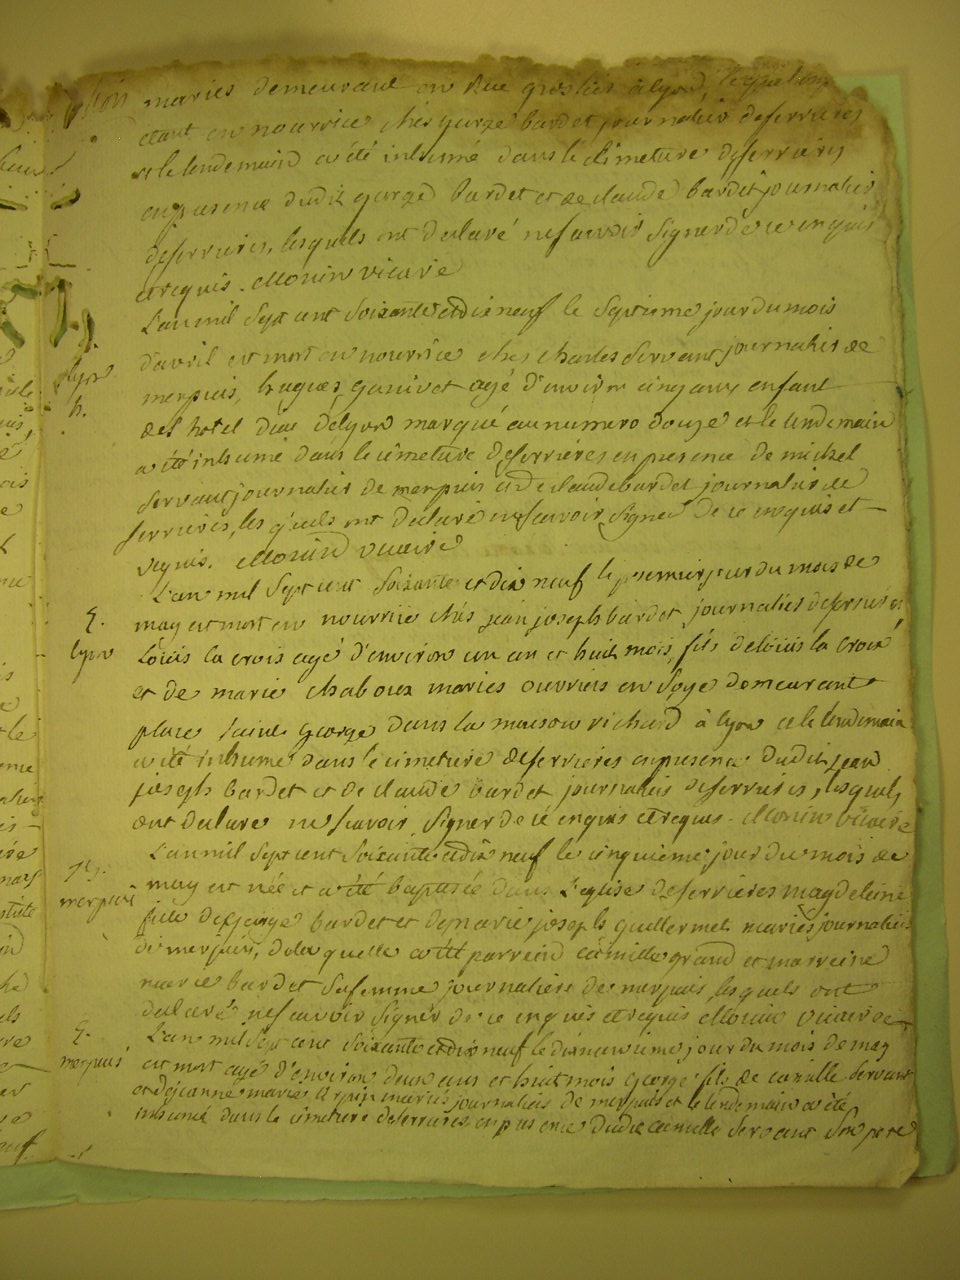 mariés demeurant en Rue grolée à lyon,
etant en nourrice chés george bardet journalier deserrieres
et le lendemain a été inhumé dans le cimetiere deserrieres
enpresence dudit george bardet et de claude bardet journalier
deserrieres, lesquels ont declaré nescavoir signer de ce enquis
et requis. Monin vicaire
L'an mil sept cent soixante et dix neuf le septieme jour du mois
d'avril est mort en nourrice chés charles servant journalier de
merpuis, hugues ganivet agé d'environ cinq ans, enfant
de l'hotel dieu de lyon marqué au numero douze et le lendemain
a été inhumé dans le cimetiere deserrieres en presence de michel
servant journalier de merpuis et de claude bardet journalier de
serrieres, lesquels ont declaré ne scavoir signer de ce enquis et
requis. Monin vicaire
lyon
h.
L'an mil sept cent soixante et dix neuf le premier jour du mois de
may est mort en nourrice chés jean joseph bardet journalier deserrieres
Loüis la crois agé d'environ un an et huit mois, fils de loüis la croix
et de marie chaboux mariés ouvriers en soye demeurant
place saint George dans la maison richard à lyon et le lendemain
a été inhumé dans le cimetiere deserrieres enpresence dudit jean
joseph bardet et de claude bardet journalier deserrieres, lesquels
ont declaré ne scavoir signer de ce enquis et requis. Monin vicaire
lyon
L'an mil sept cent soixante et dix neuf le cinquieme jour du mois de
may est née et a été baptisée dans l'eglise deserrieres magdeleine
fille de George bardet et de marie joseph guillermet mariés journaliers
de merpuis, de laquelle a été parrein camille grand et marreine
marie bardet sa femme journaliere de merpuis lesquels ont
declaré nescavoir signer de ce enquis et requis Monin vicaire
merpuis
L'an mil sept cent soixante et dix neuf le dixneuvieme jour du mois de may
est mort agé d'environ deux ans et huit mois George fils de camille servant
et de jeanne marie mariés journaliers de merpuis et le lendemain a été
inhumé dans le cimetiere deserrieres en presence dudit camille servant son pere
merpuis